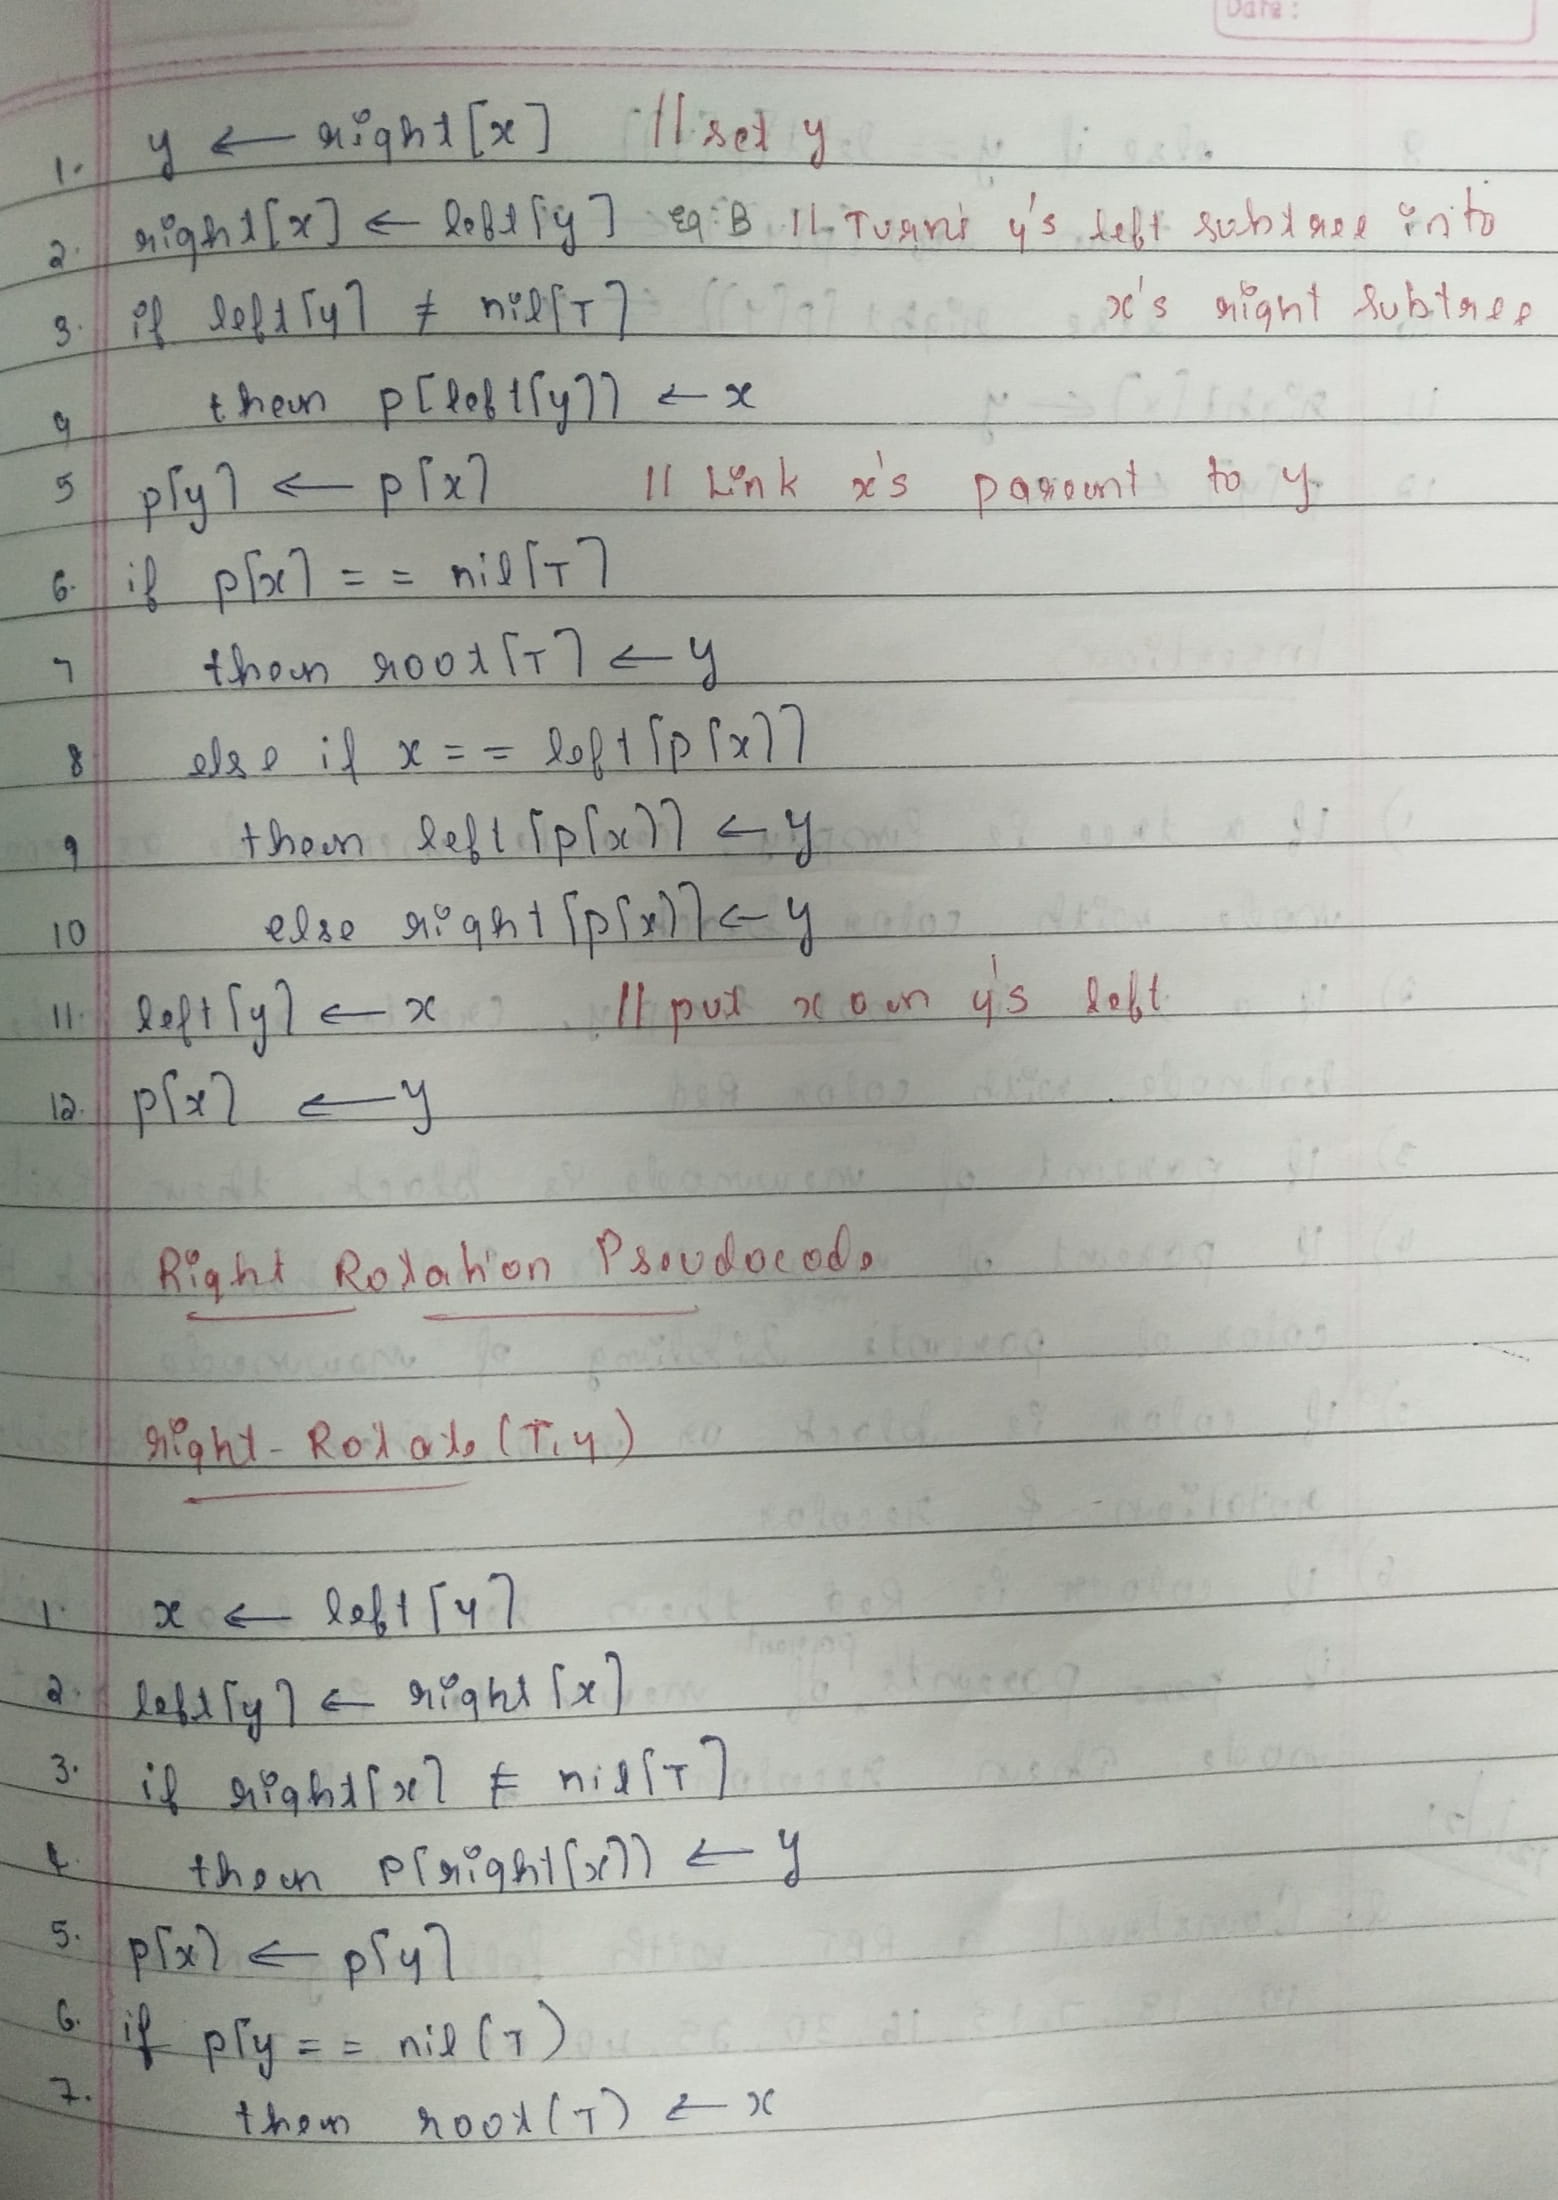 Date:
1. y ← right[x] // set y
2. right[x] ← left[y] eg: B // Turns y's left subtree into
x's right subtree
3. if left[y] ≠ nil[T]
4 then p[left[y]] ← x
5 p[y] ← p[x] // Link x's parent to y
6. if p[x] == nil[T]
7 then root[T] ← y
8 else if x == left[p[x]]
9 then left[p[x]] ← y
10 else right[p[x]] ← y
11. left[y] ← x // put x on y's left
12. p[x] ← y
Right Rotation Pseudocode
right-Rotate(T,y)
1. x ← left[y]
2. left[y] ← right[x]
3. if right[x] ≠ nil[T]
4. then p[right[x]] ← y
5. p[x] ← p[y]
6. if p[y == nil(T)
7. then root(T) ← x